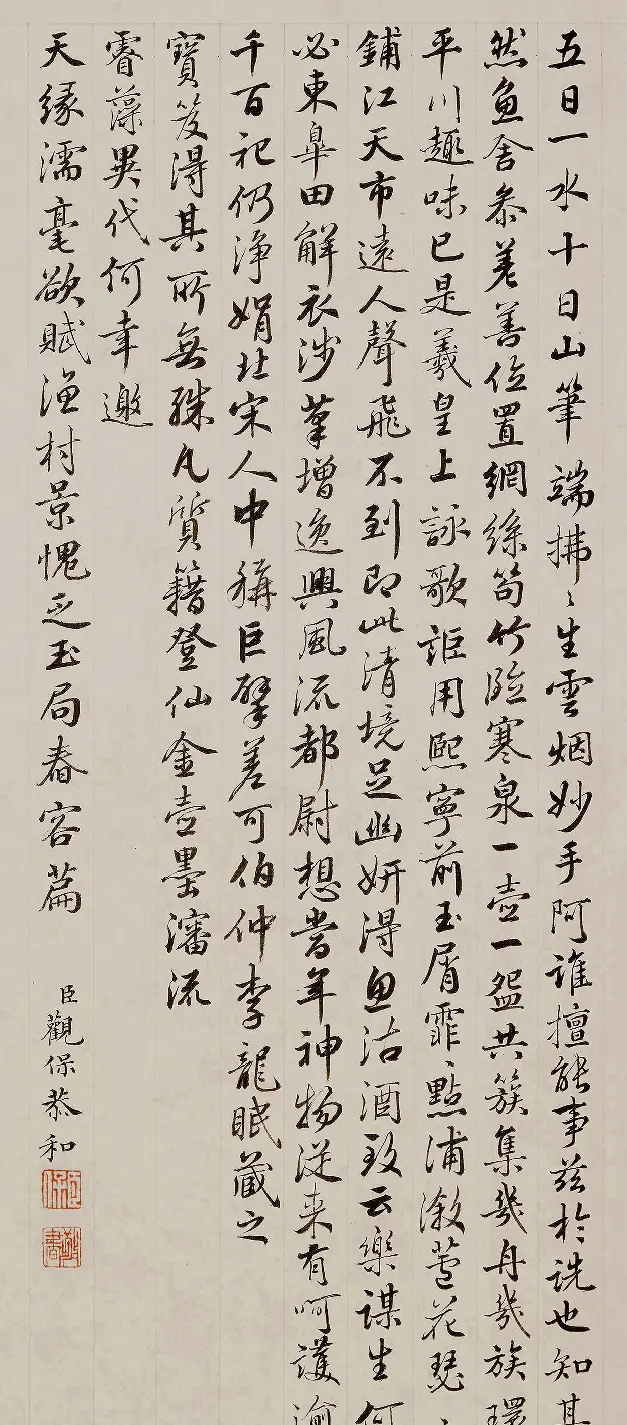 五日一水十日山筆端拂〻生雲烟妙手阿誰擅能事茲於詵也知其
然魚舍參差善位置網絲笱竹臨寒泉一壺一盌共簇集幾舟幾族環
平川趣味已是羲皇上詠歌詎用熙寧前玉屑霏〻點浦漵荳花瑟〻
鋪江天市遠人聲飛不到即此清境足幽妍得魚沽酒致云樂謀生何
必東皐田解衣涉筆增逸興風流都尉想當年神物從来有呵護逾
千百祀仍淨娟北宋人中稱巨擘差可伯仲李龍眠藏之
寶笈得其所無殊凡質籍登仙金壺墨瀋流
睿藻異代何幸邀
天緣濡毫欲賦漁村景愧乏玉局春容篇
臣觀保恭和